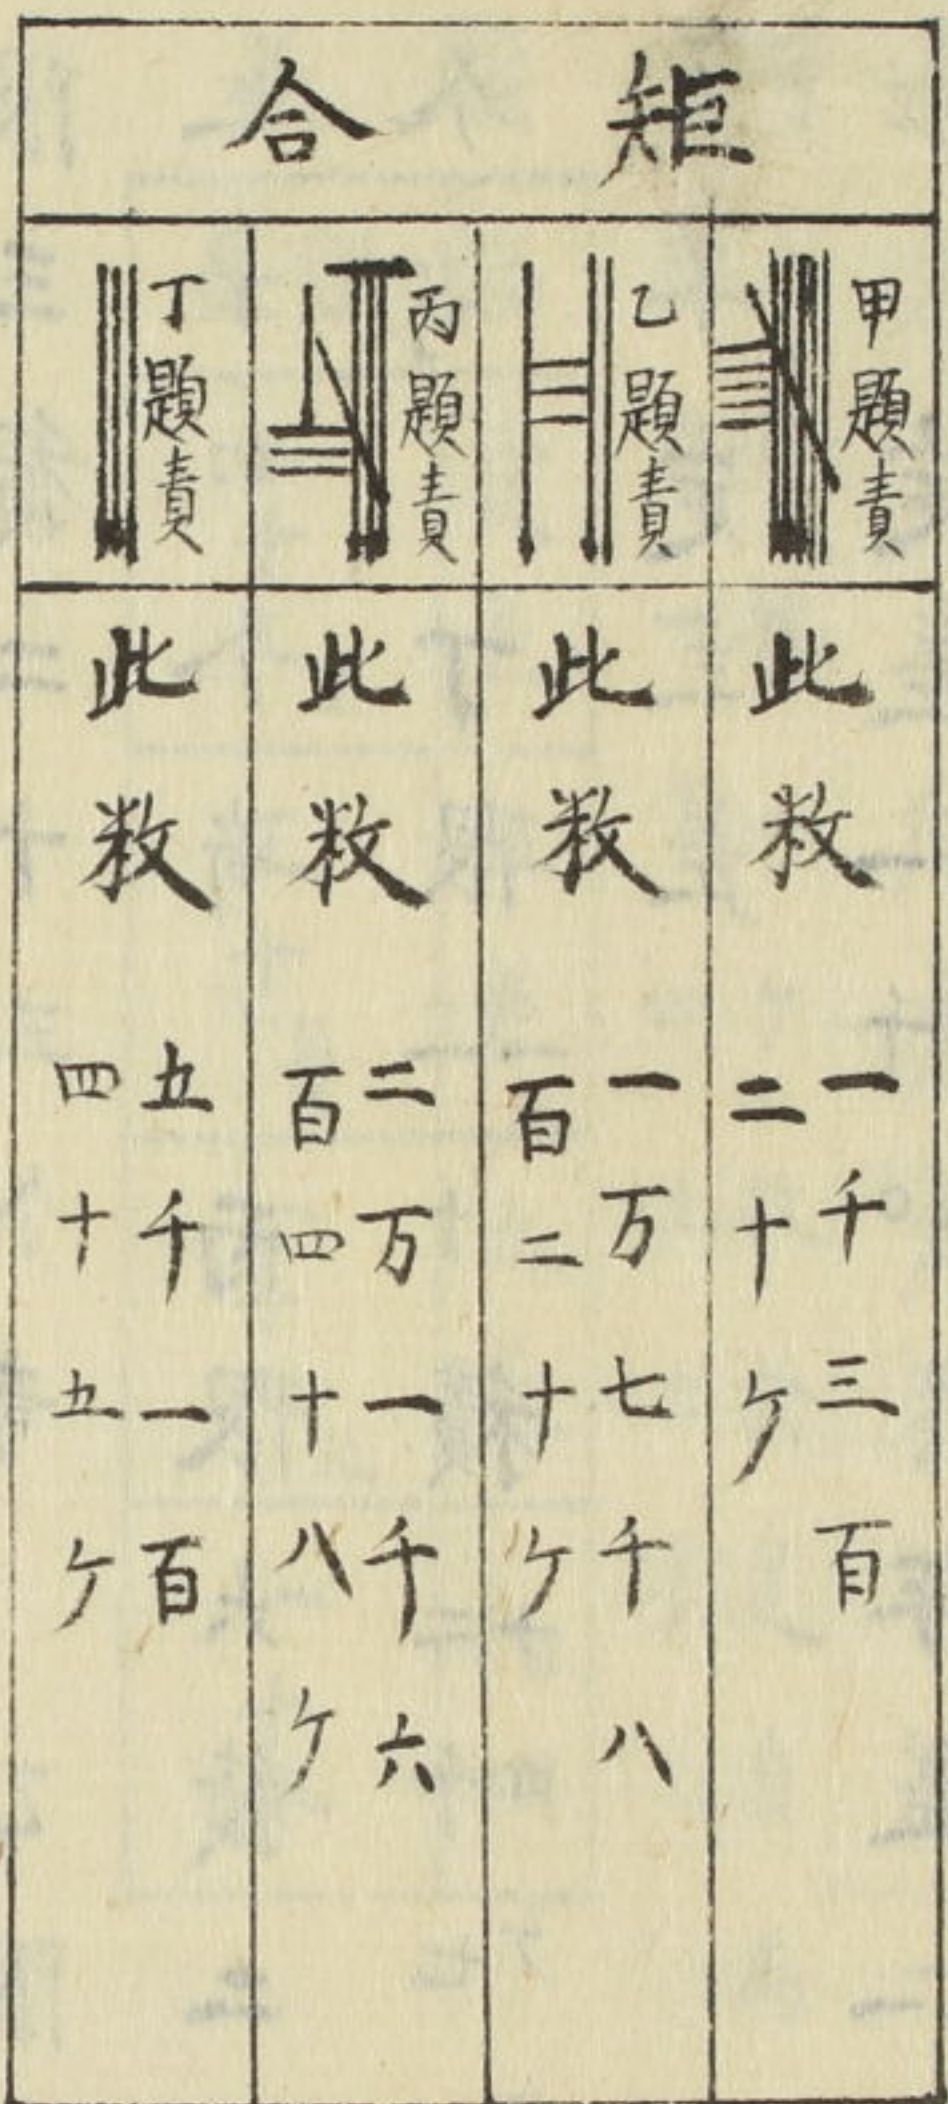 矩合
甲題責
此数
一千三百
二十ケ
乙題責
此数
一万七千八
百二十ケ
丙題責
此数
二万一千六
百四十八ケ
丁題責
此数
五千一百
四十五ケ